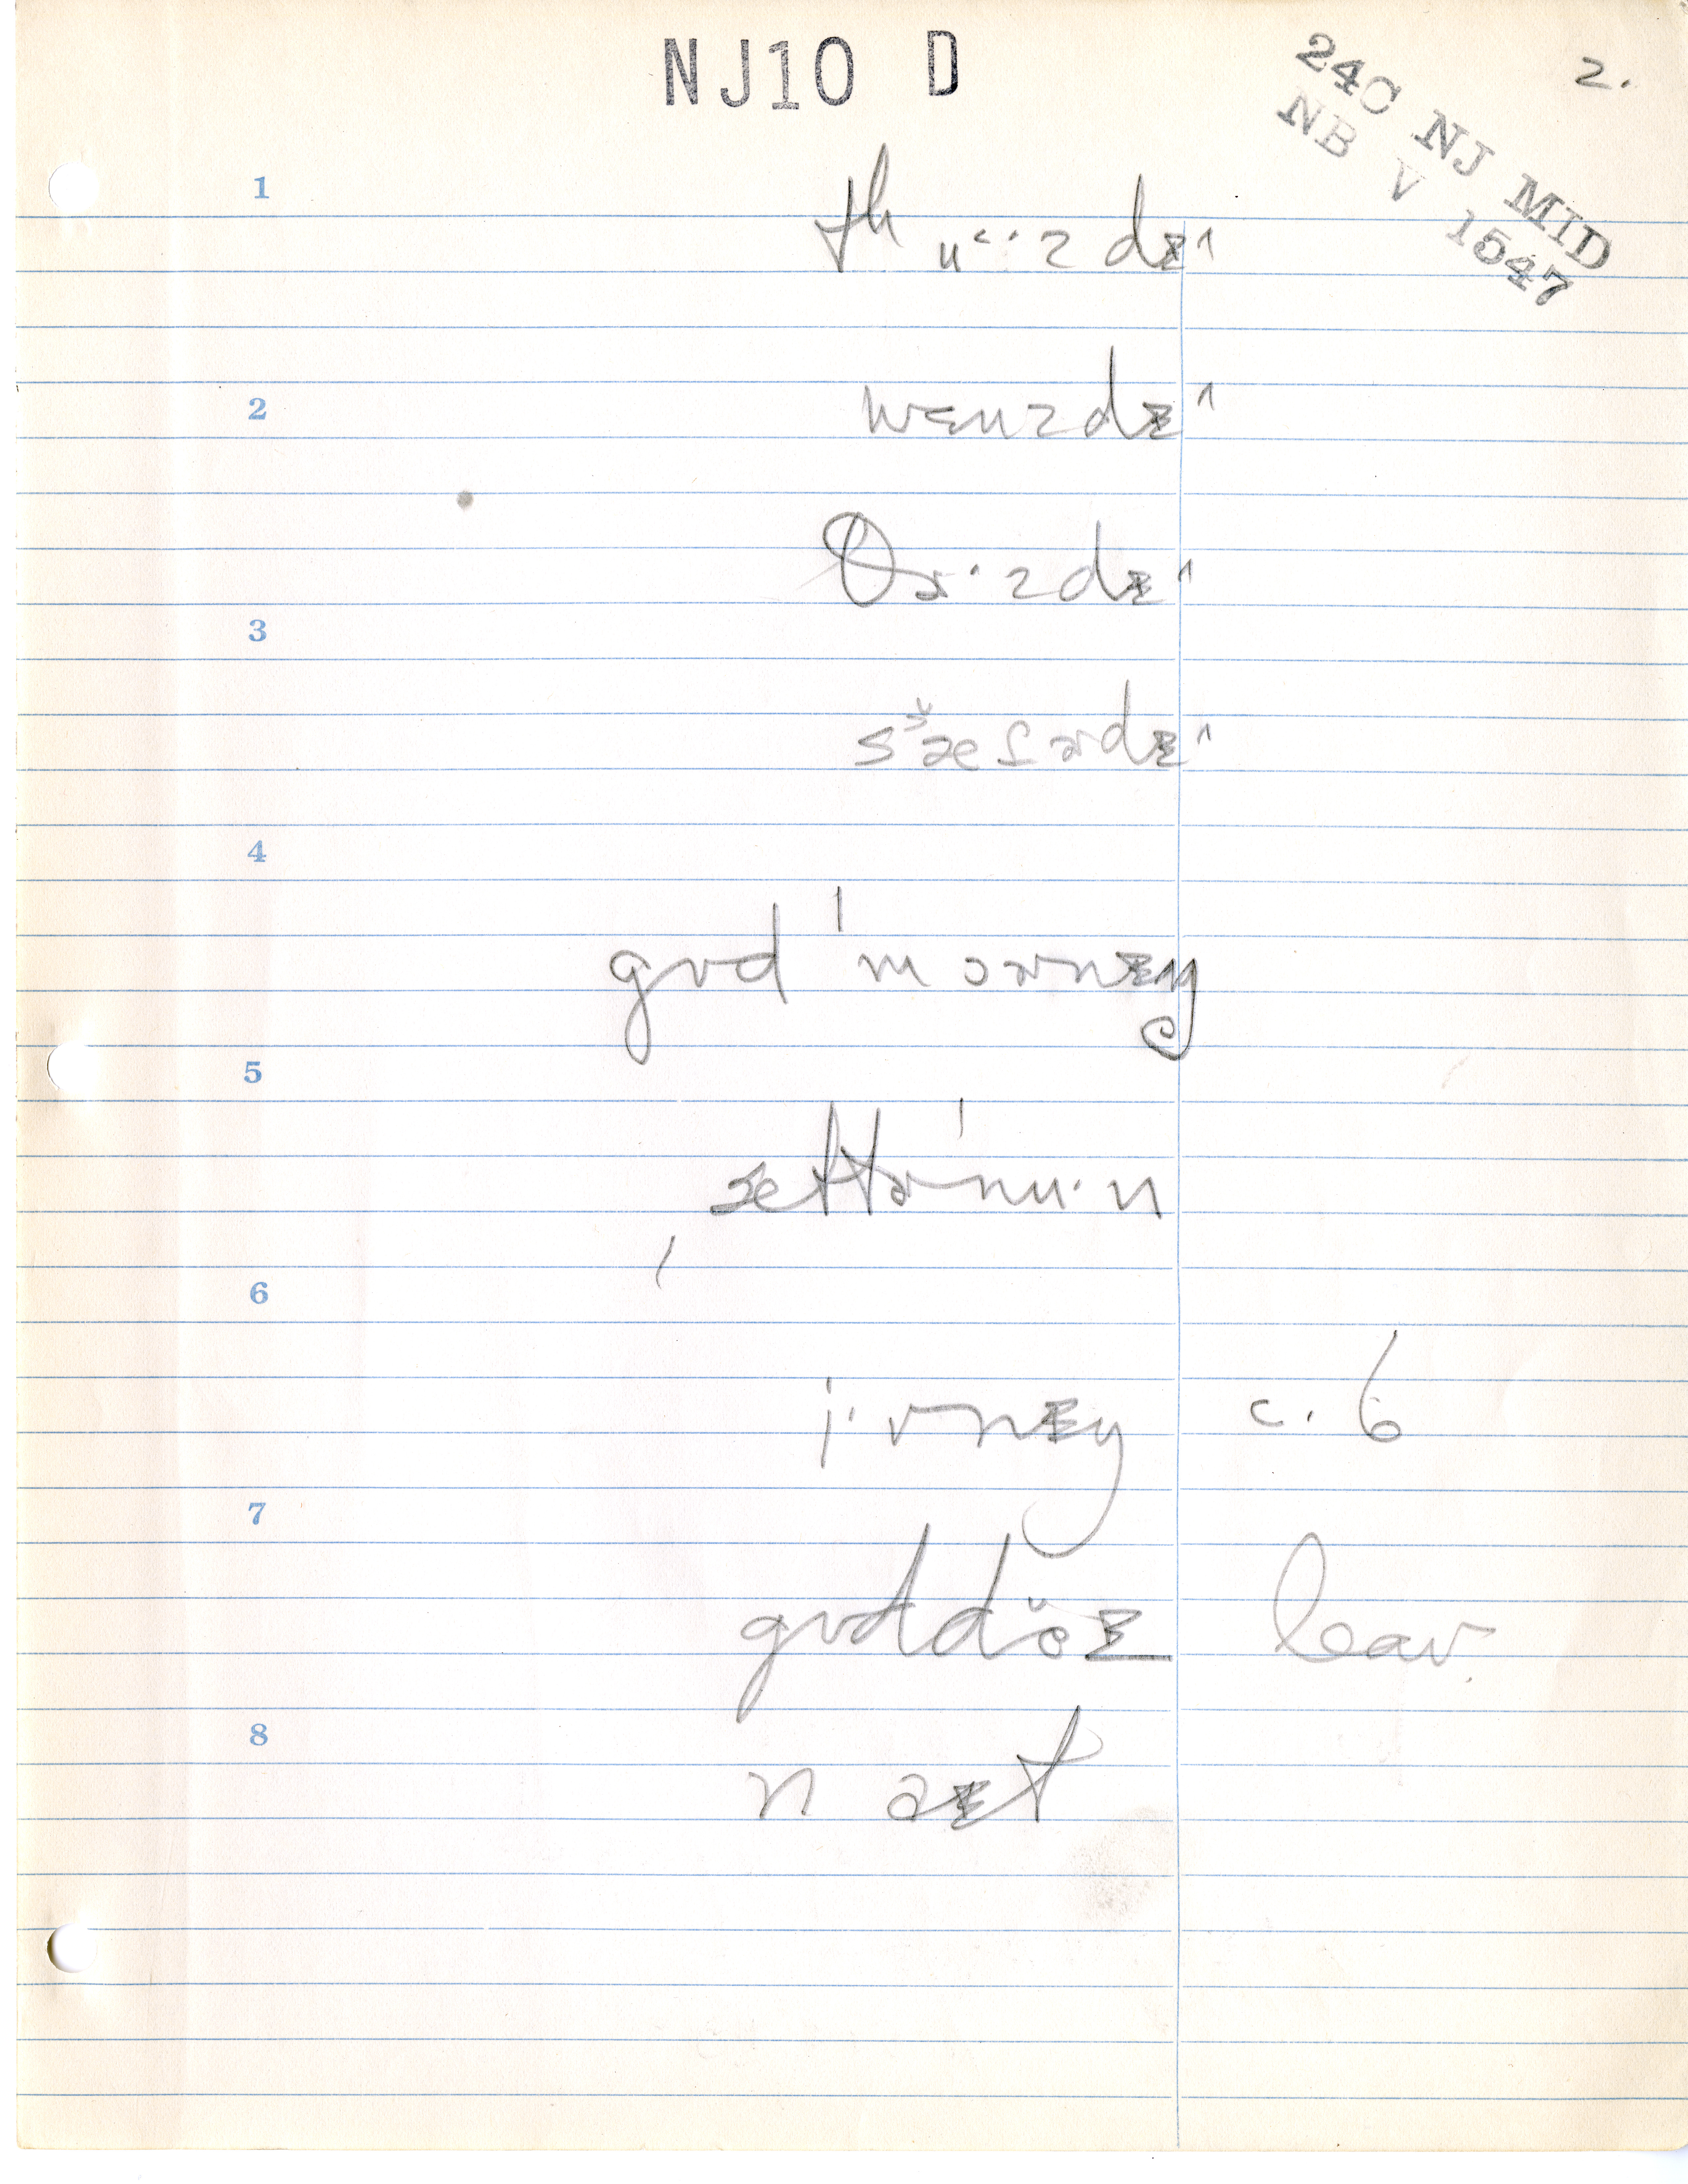 NJ10 D
2.
24C NJ MID
NB V 1547
1
tʰu‹·zdɪ^
2
wɛnzdɪ^
θɚ·zdɪ^
3
sæ̌ɾɚdɪ^
4
gʊd ˈmɔɚnɪŋ
5
ˌæftɚˈnu·n
6
i·vnɪŋ c. 6
7
gʊddŏɪ leav.
8
naɪt